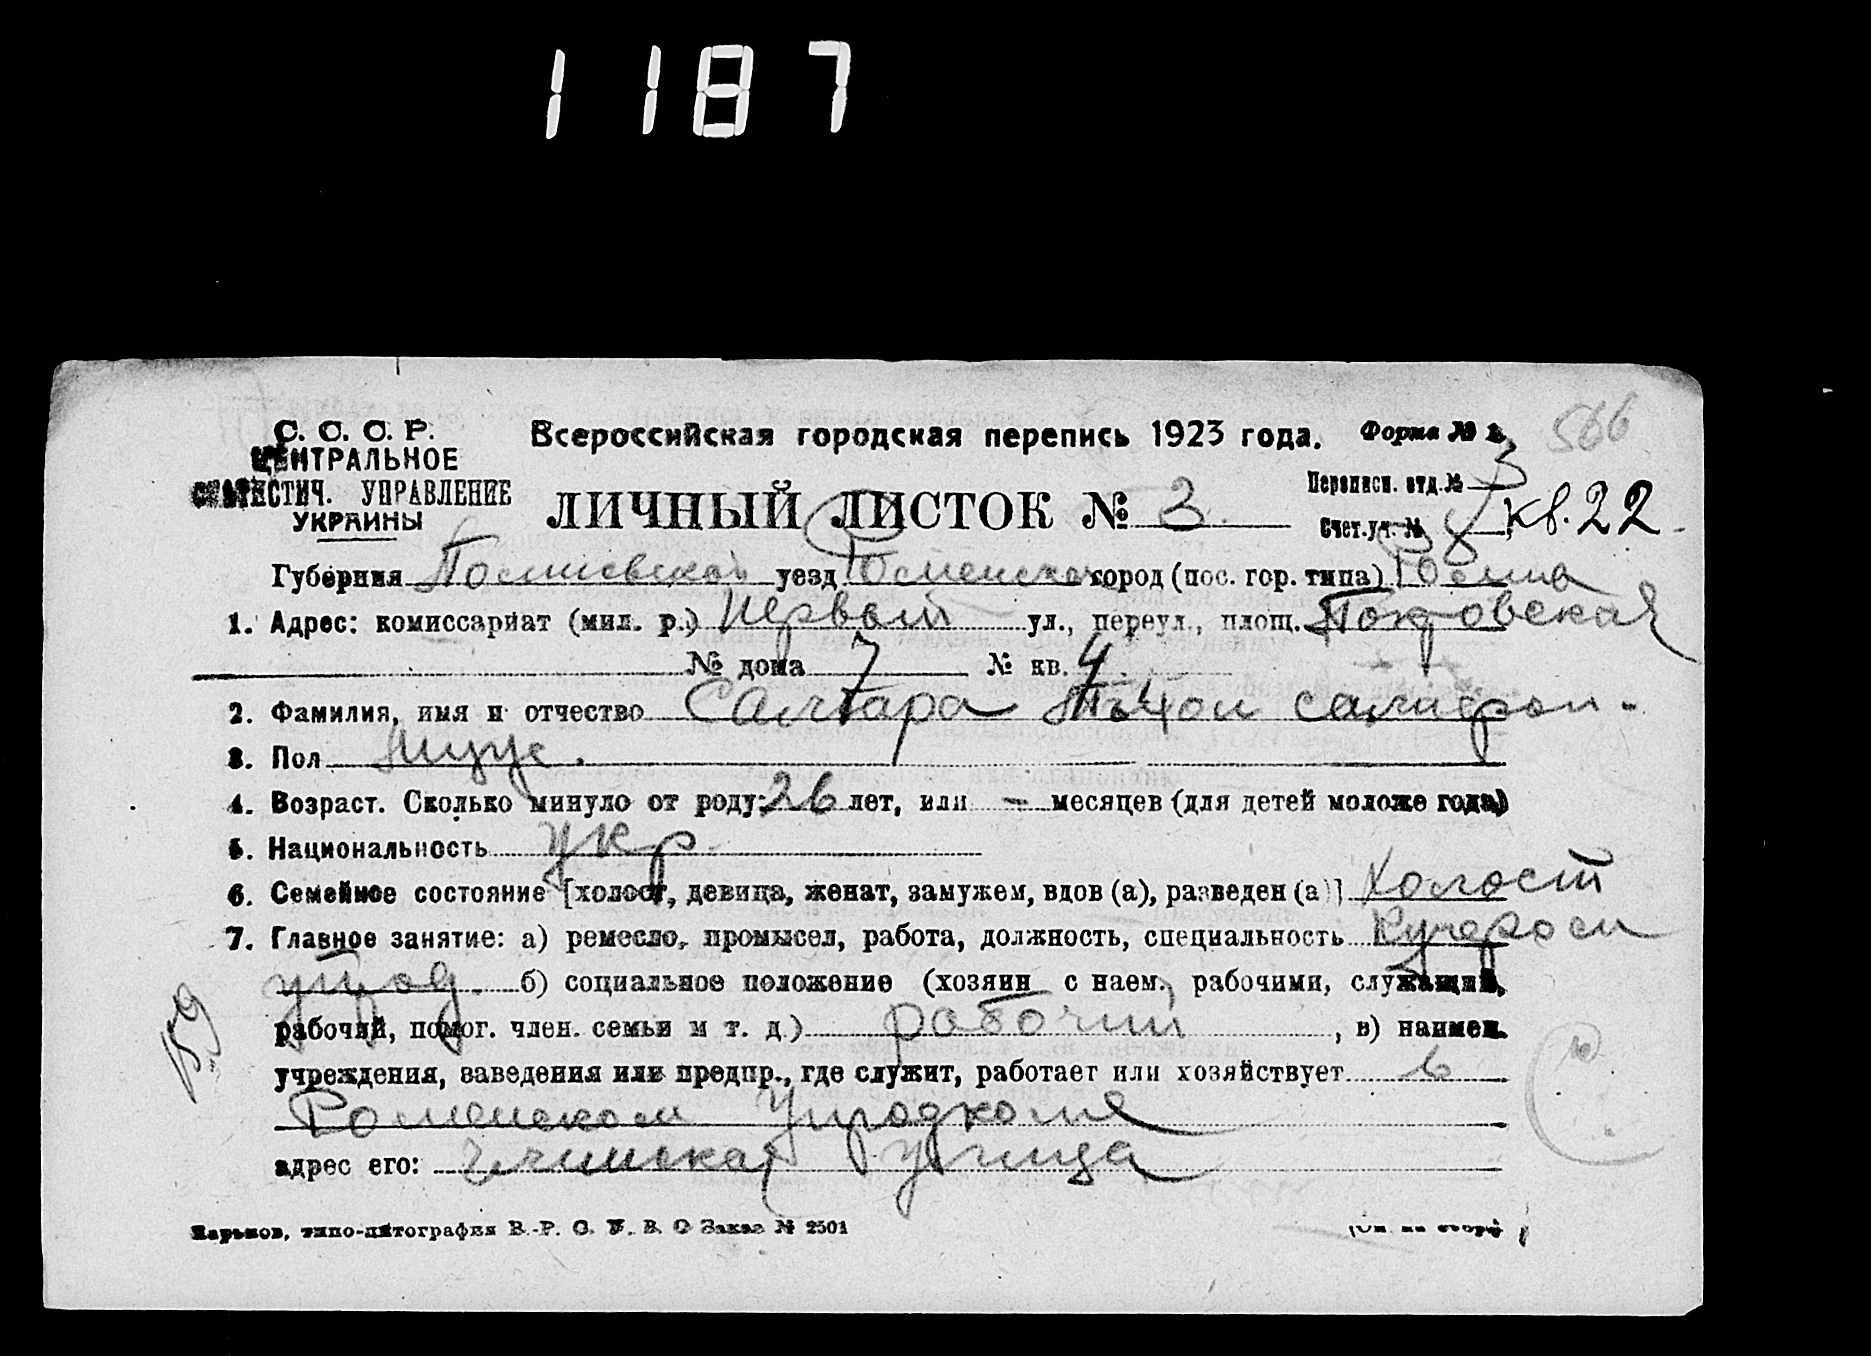 1187
С. С. С. Р. Всероссийская городская перепись 1923 года. Форма № 2. 566
ЦЕНТРАЛЬНОЕ
СТАТИСТИЧ. УПРАВЛЕНИЕ ЛИЧНЫЙ ЛИСТОК № 3 Переписн. отд. № 3
УКРАИНЫ Счет. уч. № 8, кв. 22
Губерния уезд город (пос. гор. типа)
1. Адрес: комиссариат (мил. р.) Первый ул., переул., площ. Покровская
№ дома 7 № кв. 4
2. Фамилия, имя и отчество
3. Пол муж.
4. Возраст. Сколько минуло от роду: 26 лет, или – месяцев (для детей моложе года)
5. Национальность укр.
6. Семейное состояние [холост, девица, женат, замужем, вдов (а), разведен (а)] холост
7. Главное занятие: а) ремесло, промысел, работа, должность, специальность кучером
упрод. б) социальное положение (хозяин с наем. рабочими, служащий,
рабочий, помог. член. семьи и т. д.) рабочий, в) наимен.
учреждения, заведения или предпр., где служит, работает или хозяйствует в
Роменском Упродкоме
адрес его: улица
Харьков, типо-литография В.-Р. С. У. В. О Заказ № 2501 (См. на обор.)